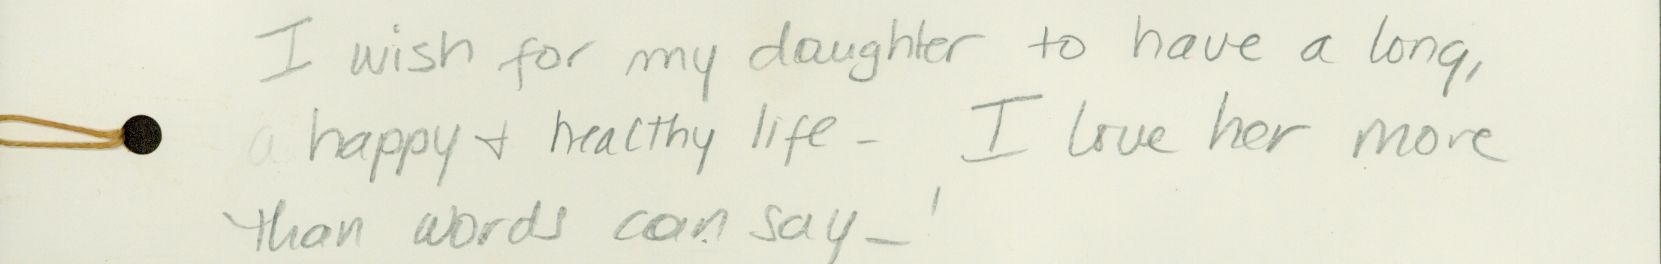 I wish for my daughter to have a long,
a happy + healthy life - I love her more
than words can say-!